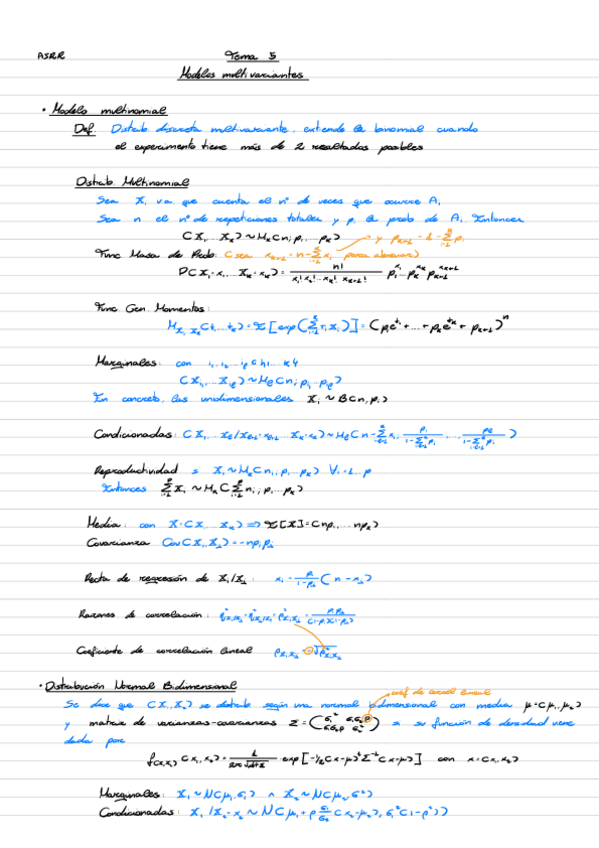 ASRR
Tema 5
Modelos multivariantes
• Modelo multinomial
Def. Distrib discreta multivariante, extiende la binomial cuando
el experimento tiene más de 2 resultados posibles
Distrib Multinomial
Sea Xi v.a que cuenta el nº de veces que ocurre Ai
Sea n el nº de repeticiones totales y pi la prob de Ai. Entonces
(X1, ... Xk) ~ Mk(n; p1, ... pk) y pk+1 = 1 - Σ pi
Func Masa de Prob: (sea xk+1 = n - Σ xi para abreviar)
P(X1=x1 ... Xk=xk) = n! / (x1! x2! ... xk! xk+1!) p1^x1 .. pk^xk pk+1^xk+1
Func Gen. Momentos:
M X1..Xk (t1, ... tk) = E[exp(Σ ti Xi)] = (p1e^t1 + ... + pke^tk + pk+1)^n
Marginales: con i1, i2, ... il ∈ {1, ... k}
(Xi1, ... Xil) ~ Ml(n; pi1 ... pil)
En concreto, las unidimensionales Xi ~ B(n, pi)
Condicionadas: (X1, ... Xl / Xl+1=xl+1, ... Xk=xk) ~ Ml(n - Σ xi, p1 / (1 - Σ pi), ..., pl / (1 - Σ pi))
Reproductividad = Xi ~ Mk(ni; p1, ... pk) ∀i=1...p
Entonces Σ Xi ~ Mk(Σ ni; p1, ... pk)
Media: con X=(X1 ... Xk) ⇒ E[X] = (np1, ... npk)
Covarianza Cov(X1, X2) = -np1p2
Recta de regresión de X1/X2: x1 = p1/(1-p2) (n - x2)
Razones de correlación: η²X1/X2 = η²X2/X1 = ρ²X1,X2 = p1p2 / ((1-p1)(1-p2))
Coeficiente de correlación lineal ρX1,X2 = -√ρ²X1,X2
• Distribución Normal Bidimensional
coef de correl lineal
Se dice que (X1, X2) se distrib según una normal bidimensional con media μ=(μ1, μ2)
y matriz de varianzas-covarianzas Σ = (σ1² σ1σ2ρ / σ1σ2ρ σ2²) = su función de densidad viene
dada por
f(X1,X2)(x1, x2) = 1 / (2π√det Σ) exp[-1/2(x-μ)ᵗΣ⁻¹(x-μ)] con x=(x1, x2)
Marginales: X1 ~ N(μ1, σ1²) ∧ X2 ~ N(μ2, σ2²)
Condicionadas: X1 / X2=x2 ~ N(μ1 + ρ σ1/σ2 (x2-μ2), σ1²(1-ρ²))